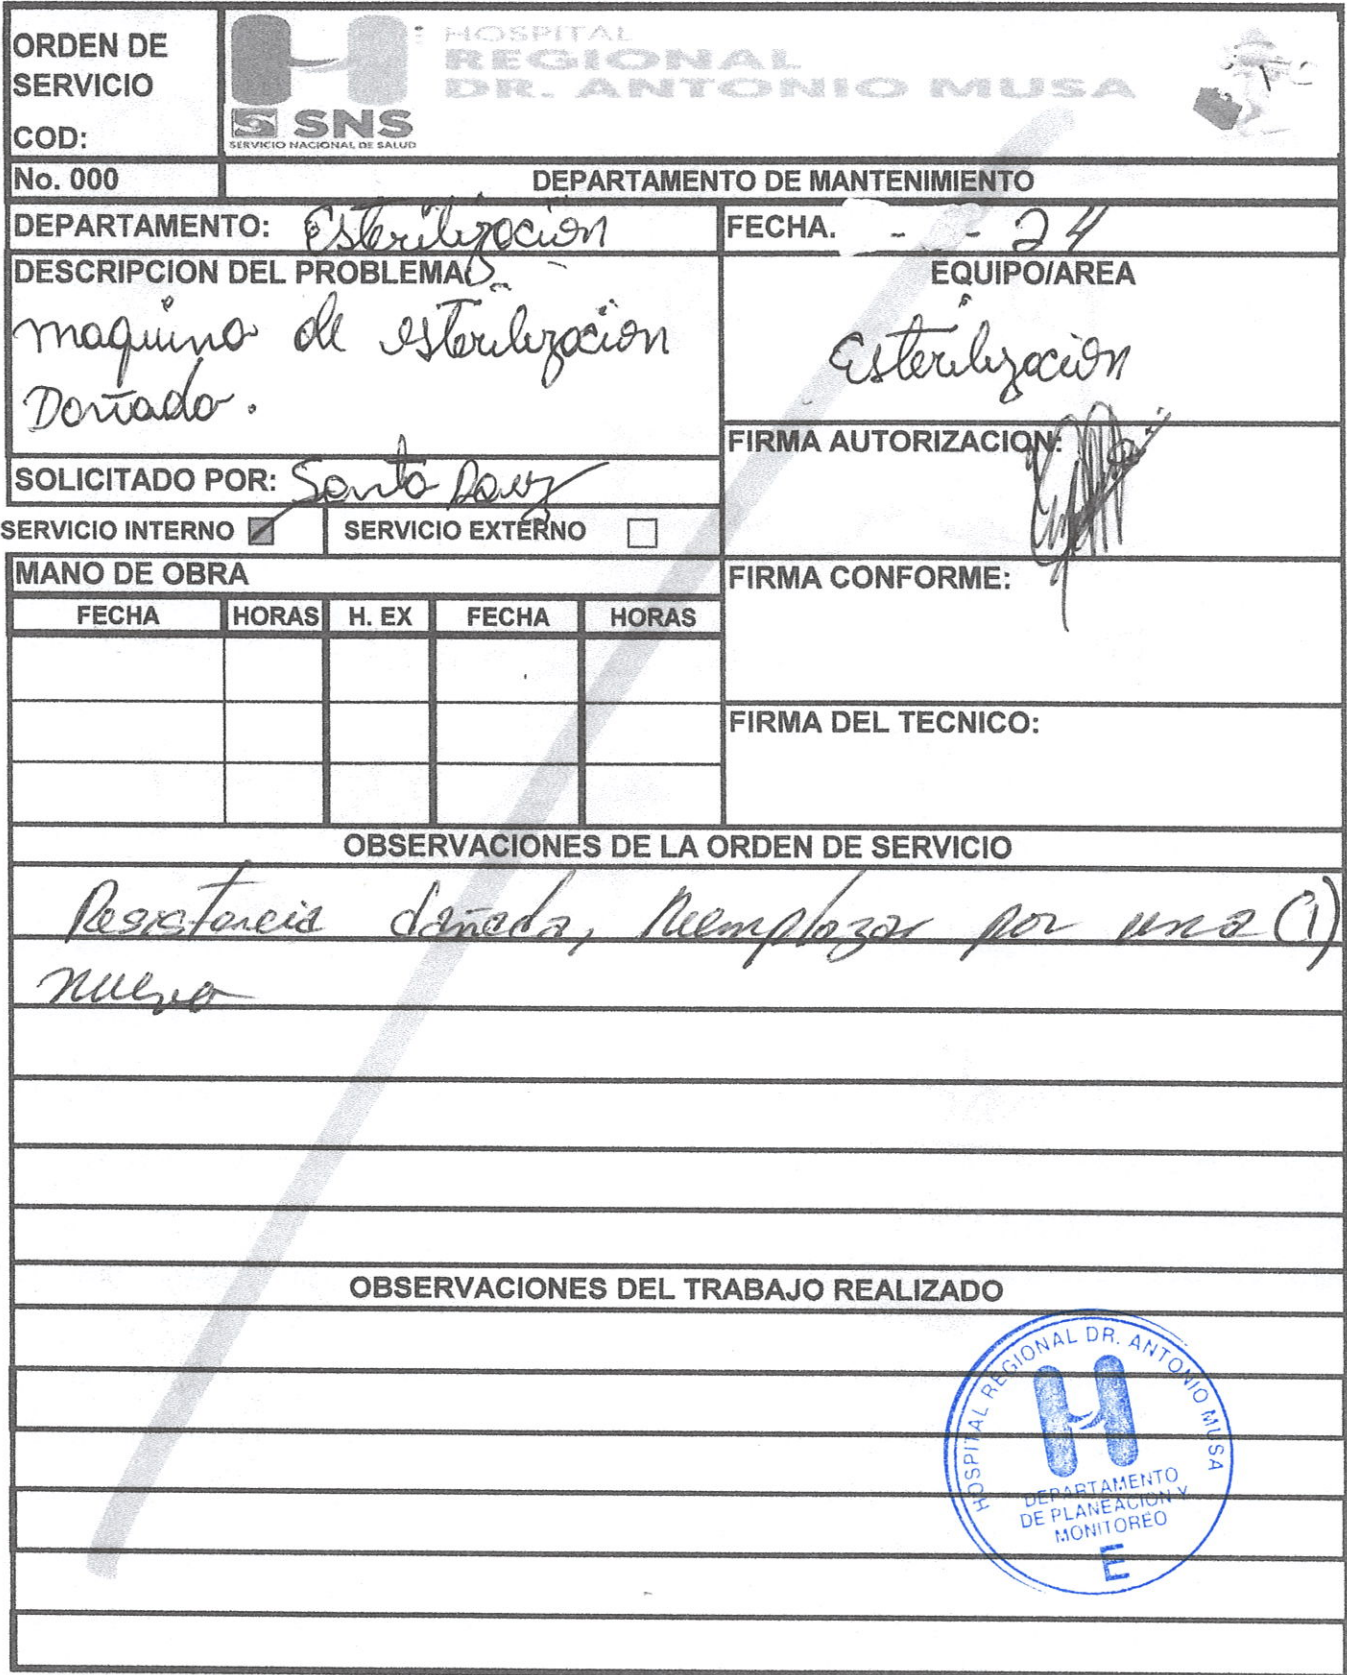 ORDEN DE
SERVICIO
COD:
HOSPITAL
REGIONAL
DR. ANTONIO MUSA
SNS
SERVICIO NACIONAL DE SALUD
No. 000
DEPARTAMENTO DE MANTENIMIENTO
DEPARTAMENTO: Esterilización
FECHA. - - 24
DESCRIPCION DEL PROBLEMA:
maquina de esterilizacion
Dañada.
EQUIPO/AREA
Esterilización
FIRMA AUTORIZACION:
SOLICITADO POR: Santa
SERVICIO INTERNO
SERVICIO EXTERNO
MANO DE OBRA
FIRMA CONFORME:
FECHA HORAS H. EX FECHA HORAS
FIRMA DEL TECNICO:
OBSERVACIONES DE LA ORDEN DE SERVICIO
Resistencia dañada, Reemplazar por una (1)
nueva
OBSERVACIONES DEL TRABAJO REALIZADO
HOSPITAL REGIONAL DR. ANTONIO MUSA
DEPARTAMENTO
DE PLANEACION Y
MONITOREO
E